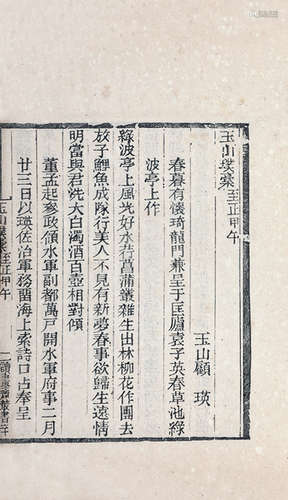 玉山璞藁至正甲午
玉山顧瑛
春暮有懷琦龍門兼呈于匡廬袁子英春草池綠
波亭上作
綠波亭上風光好水荇菖蒲叢雜生出林柳花作團去
放子鯉魚成隊行美人不見有新夢春事欲歸生遠情
明當與君㸔大白濁酒百壺相對傾
董孟起參政領水軍副都萬戶開水軍府事二月
廿三日以瑛佐治軍務留海上索詩口占奉呈
玉山璞藁至正甲午
一
讀畫齋叢書